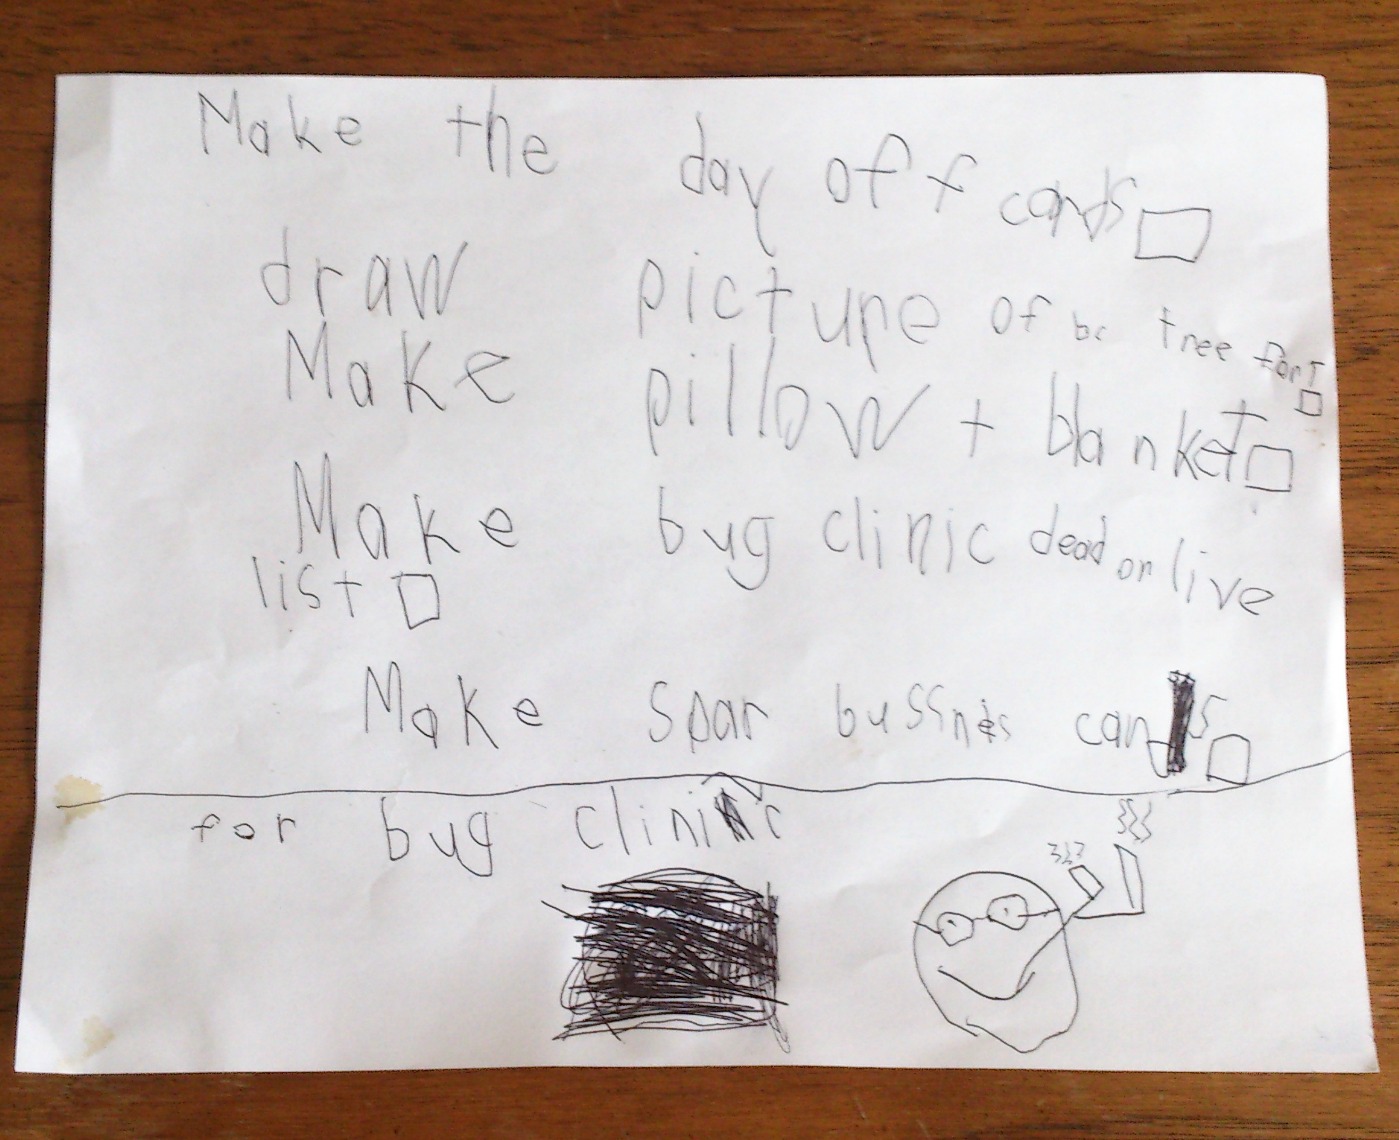 Make the day off cards
draw picture of bc tree fort
Make pillow + blanket
Make bug clinic dead or live
list
Make spar bussnds cards
for bug clinic